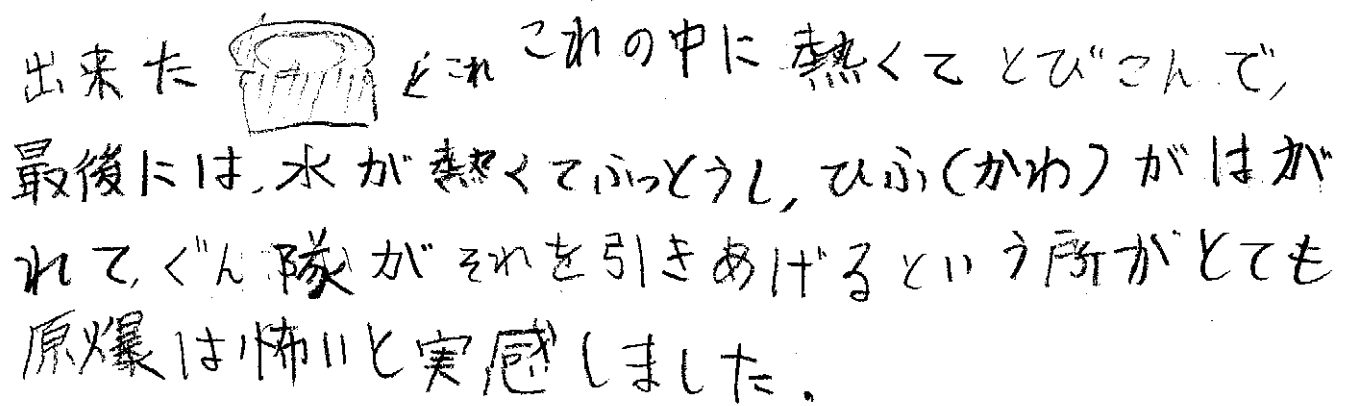 出来た とこれ これの中に熱くてとびこんで,
最後には,水が熱くてふっとうし,ひふ(かわ)がはが
れて,ぐん隊がそれを引きあげるという所がとても
原爆は怖いと実感しました.